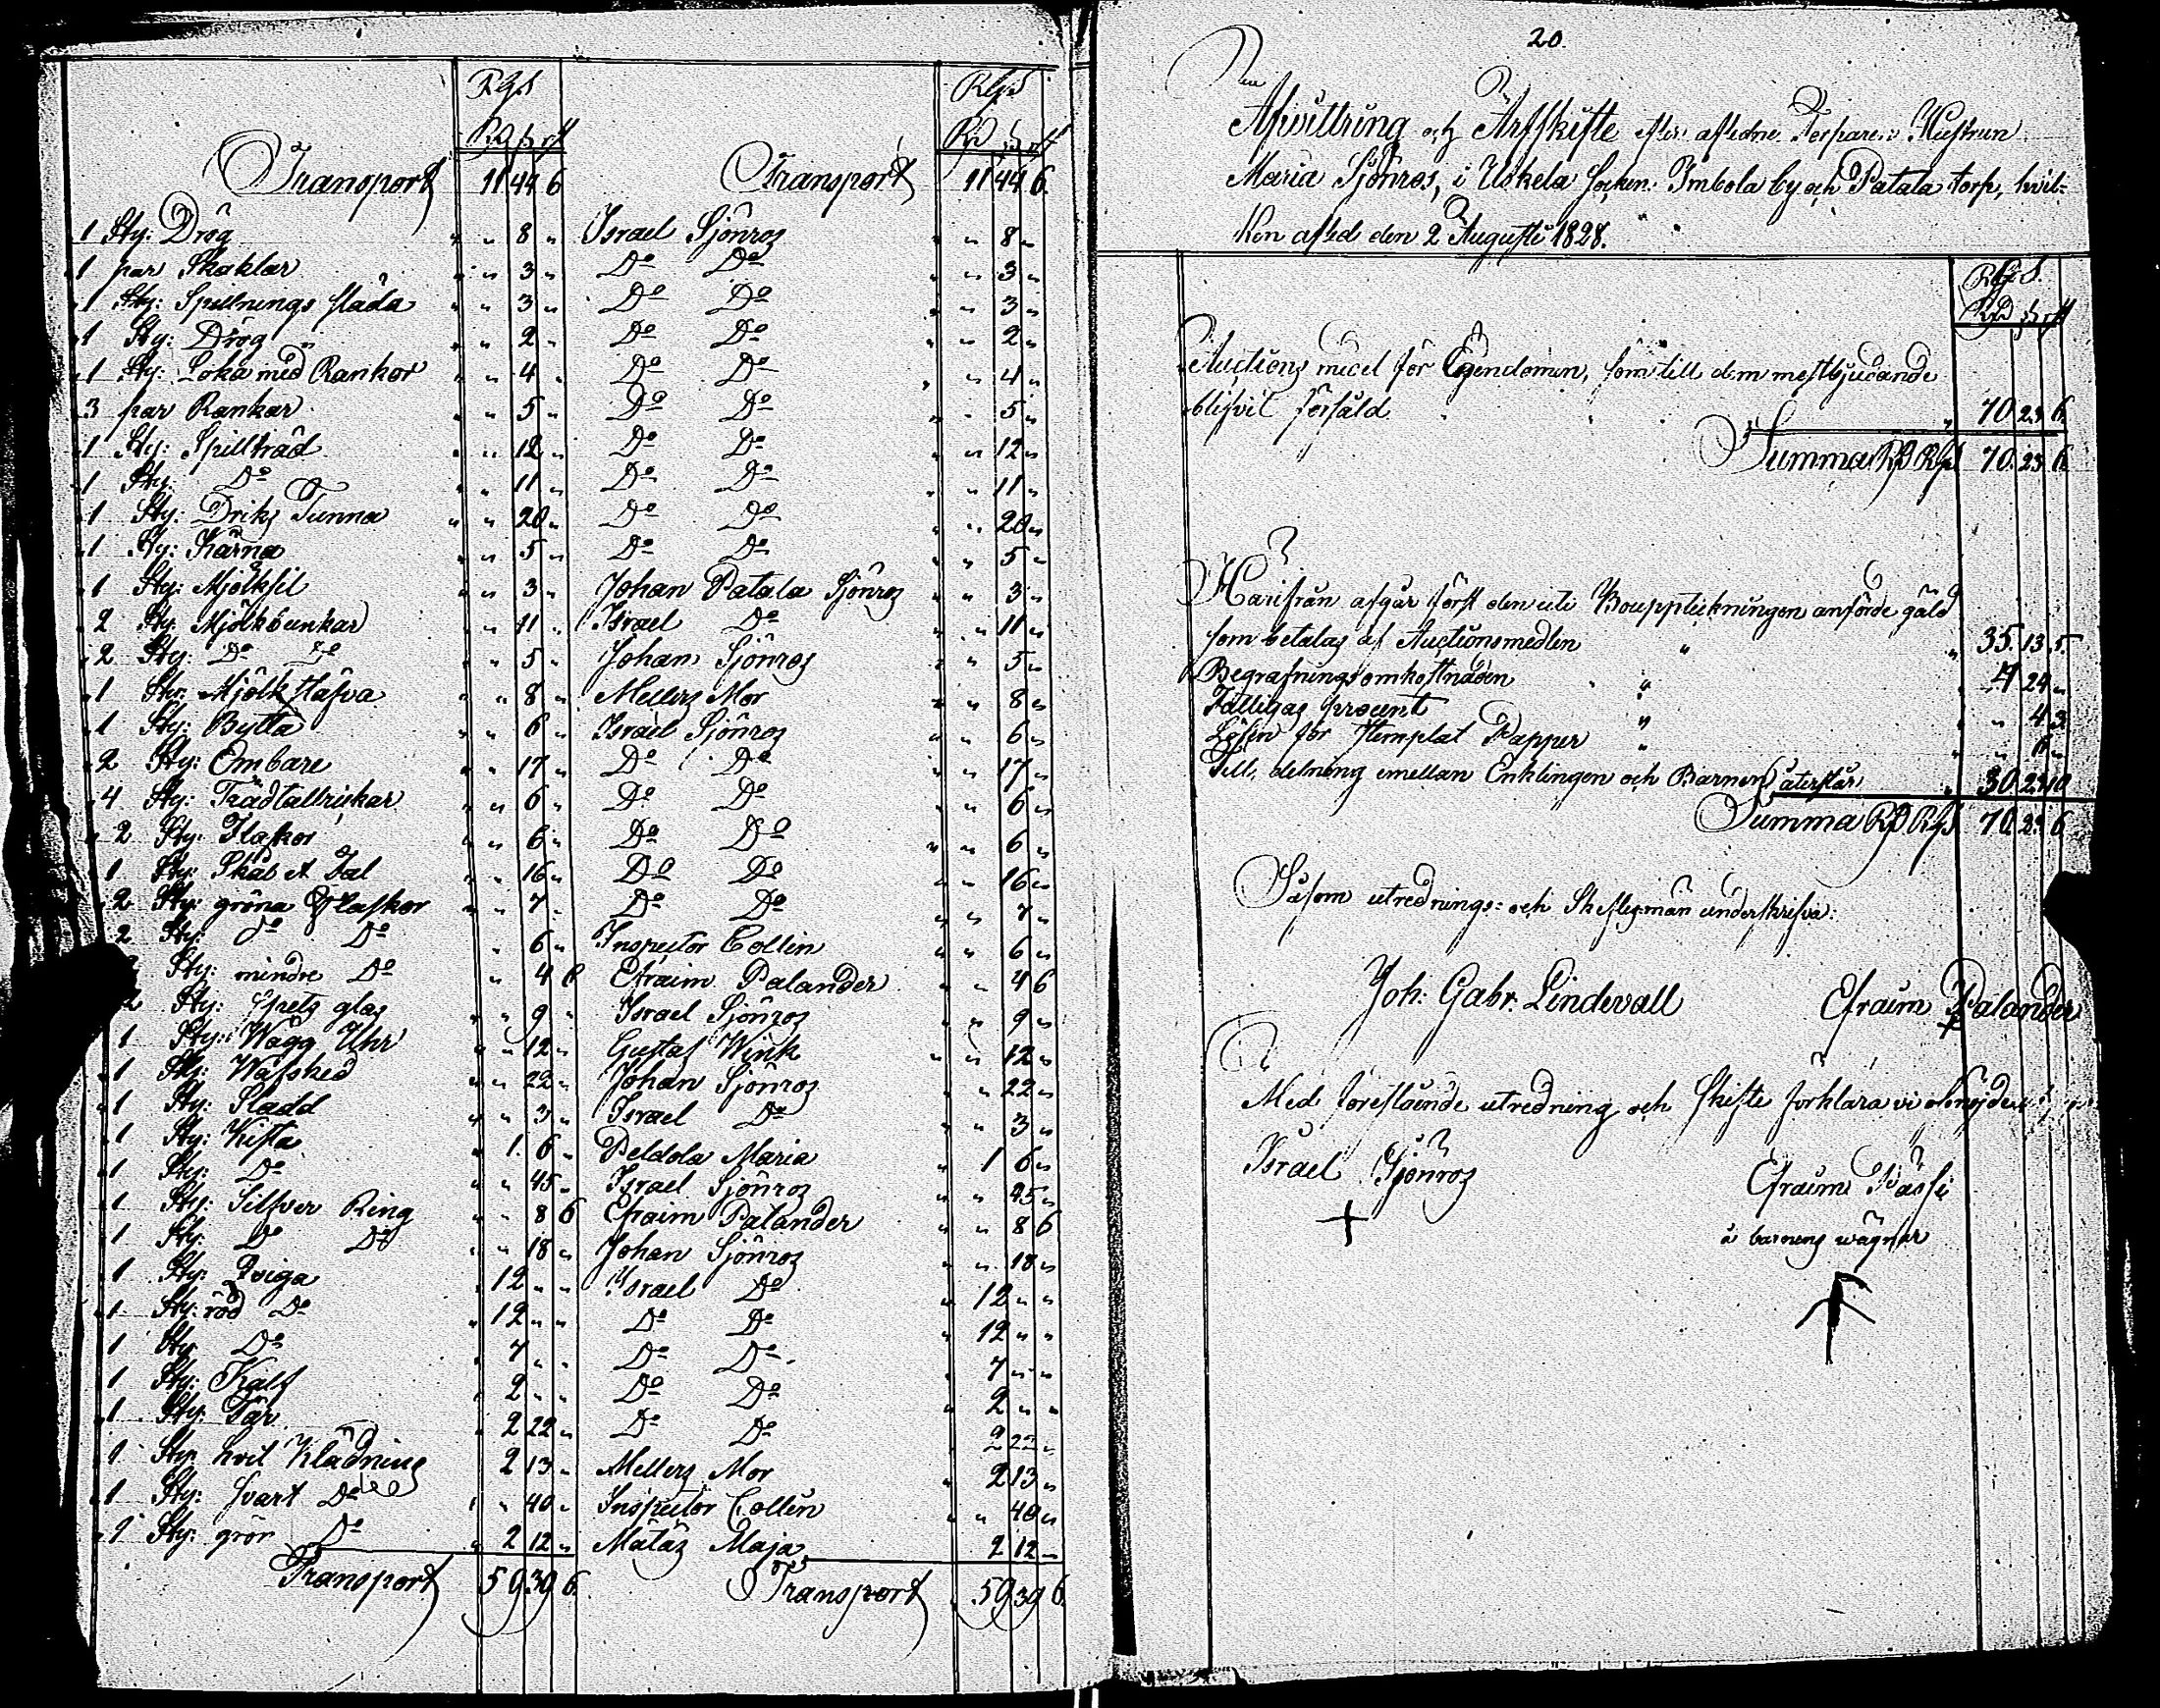 Rgs Rgs
Rd ß rst Rd ß rst
Transport 11 44 6 Transport 11 44 6
1 Sty: Drög " " 8 " Israel Sjönros " " 8 "
1 par Skaklar " " 3 " Do Do " " 3 "
1 Sty: Spillnings släda " " 3 " Do Do " " 3 "
1 Sty: Drög " " 2 " Do Do " " 2 "
1 Sty: Loka med Rankor " " 4 " Do Do " " 4 "
3 par Rankar " " 5 " Do Do " " 5 "
1 Sty: Spilltråd " " 12 " Do Do " " 12 "
1 Sty: Do " " 11 " Do Do " " 11 "
1 Sty: Driks Tunna " " 20 " Do Do " " 20 "
1 Sty: Kärna " " 5 " Do Do " " 5 "
1 Sty: Mjölksil " " 3 " Johan Patala Sjönros " " 3 "
2 Sty: Mjölkbunkar " " 11 " Israel Do " " 11 "
2 Sty: Do Do " " 5 " Johan Sjönros " " 5 "
1 Sty: Mjölk Hafva " " 8 " Mellers Mor " " 8 "
1 Sty: Bytta " " 6 " Israel Sjönros " " 6 "
2 Sty: Embare " " 17 " Do Do " " 17 "
4 Sty: Trädtallrickar " " 6 " Do Do " " 6 "
2 Sty: Flaskor " " 6 " Do Do " " 6 "
1 Sty: Skåb et Fal " " 16 " Do Do " " 16 "
2 Sty: gröna Flaskor " " 7 " Do Do " " 7 "
2 Sty: do Do " 6 " Inspector Collin " " 6 "
Sty: mindre Do " 4 6 Efraim Palander " " 4 6
2 Sty: spets glas " " 9 " Israel Sjönros " " 9 "
1 Sty: Wägg Uhr " " 12 " Gustaf Wink " " 12 "
1 Sty: Wäfsked " " 22 " Johan Sjönros " " 22 "
1 Sty: Sladd " " 3 " Israel Do " " 3 "
1 Sty: Kista " 1 6 " Peldola Maria " 1 6 "
1 Sty: Do " " 45 " Israel Sjönros " " 45 "
1 Sty: Silfver Ring " " 8 6 Efraim Palander " " 8 6
1 Sty: Do Do " " 18 " Johan Sjönros " " 18 "
1 Sty: Qviga 12 " " Israel Do " 12 " "
1 Sty: röd Do " 12 " " Do Do " 12 " "
1 Sty: Do " 7 " " Do Do " 7 " "
1 Sty: Kalf " 2 " " Do Do " 2 " "
1 Sty: Får 2 22 " Do Do 2 22 "
1 Sty: hvit Klädning 2 13 " Mellers Mor " 2 13 "
1 Sty: svart Do " " 40 " Inspector Collin " " 40 "
1 Sty: grön Do " 2 12 " Matas Maja 2 12 "
Transport 59 39 6 Transport 59 39 6
20.
Afvittring och Arfskifte efter aflidne Torparen Hustrun
Maria Sjönros, i Uskela socken: Imbola by och Patala torp, hvil-
ken afled den 2 Augusti 1828.
Rgs.
Rd ß rst
Auctions medel för Egendomen, som till dem mestbjudande
blifvit försåld " 70 23 6
Summa Rd Rgs 70 23 6
Härifrån afgår först den uti Bouppteckningen anförde gäld
som betalas af Auctionsmedlen " " 35 13 5
Begrafningsomkostnaden " " 4 24 "
Fattigas procent " " " 4 3
Lösen för stemplat Papper " " " 6 "
Till delning emellan Enklingen och Barnen återstår " 30 23 10
Summa Rd Rgs 70 23 6
Såsom utrednings: och Skiftesmän underskrifva:
Joh: Gabr: Lindevall Efraim Palander
Med föreslående utredning och skifte förklara vi oss nöjde
Israel Sjönros Efraim
å barnens wägnar